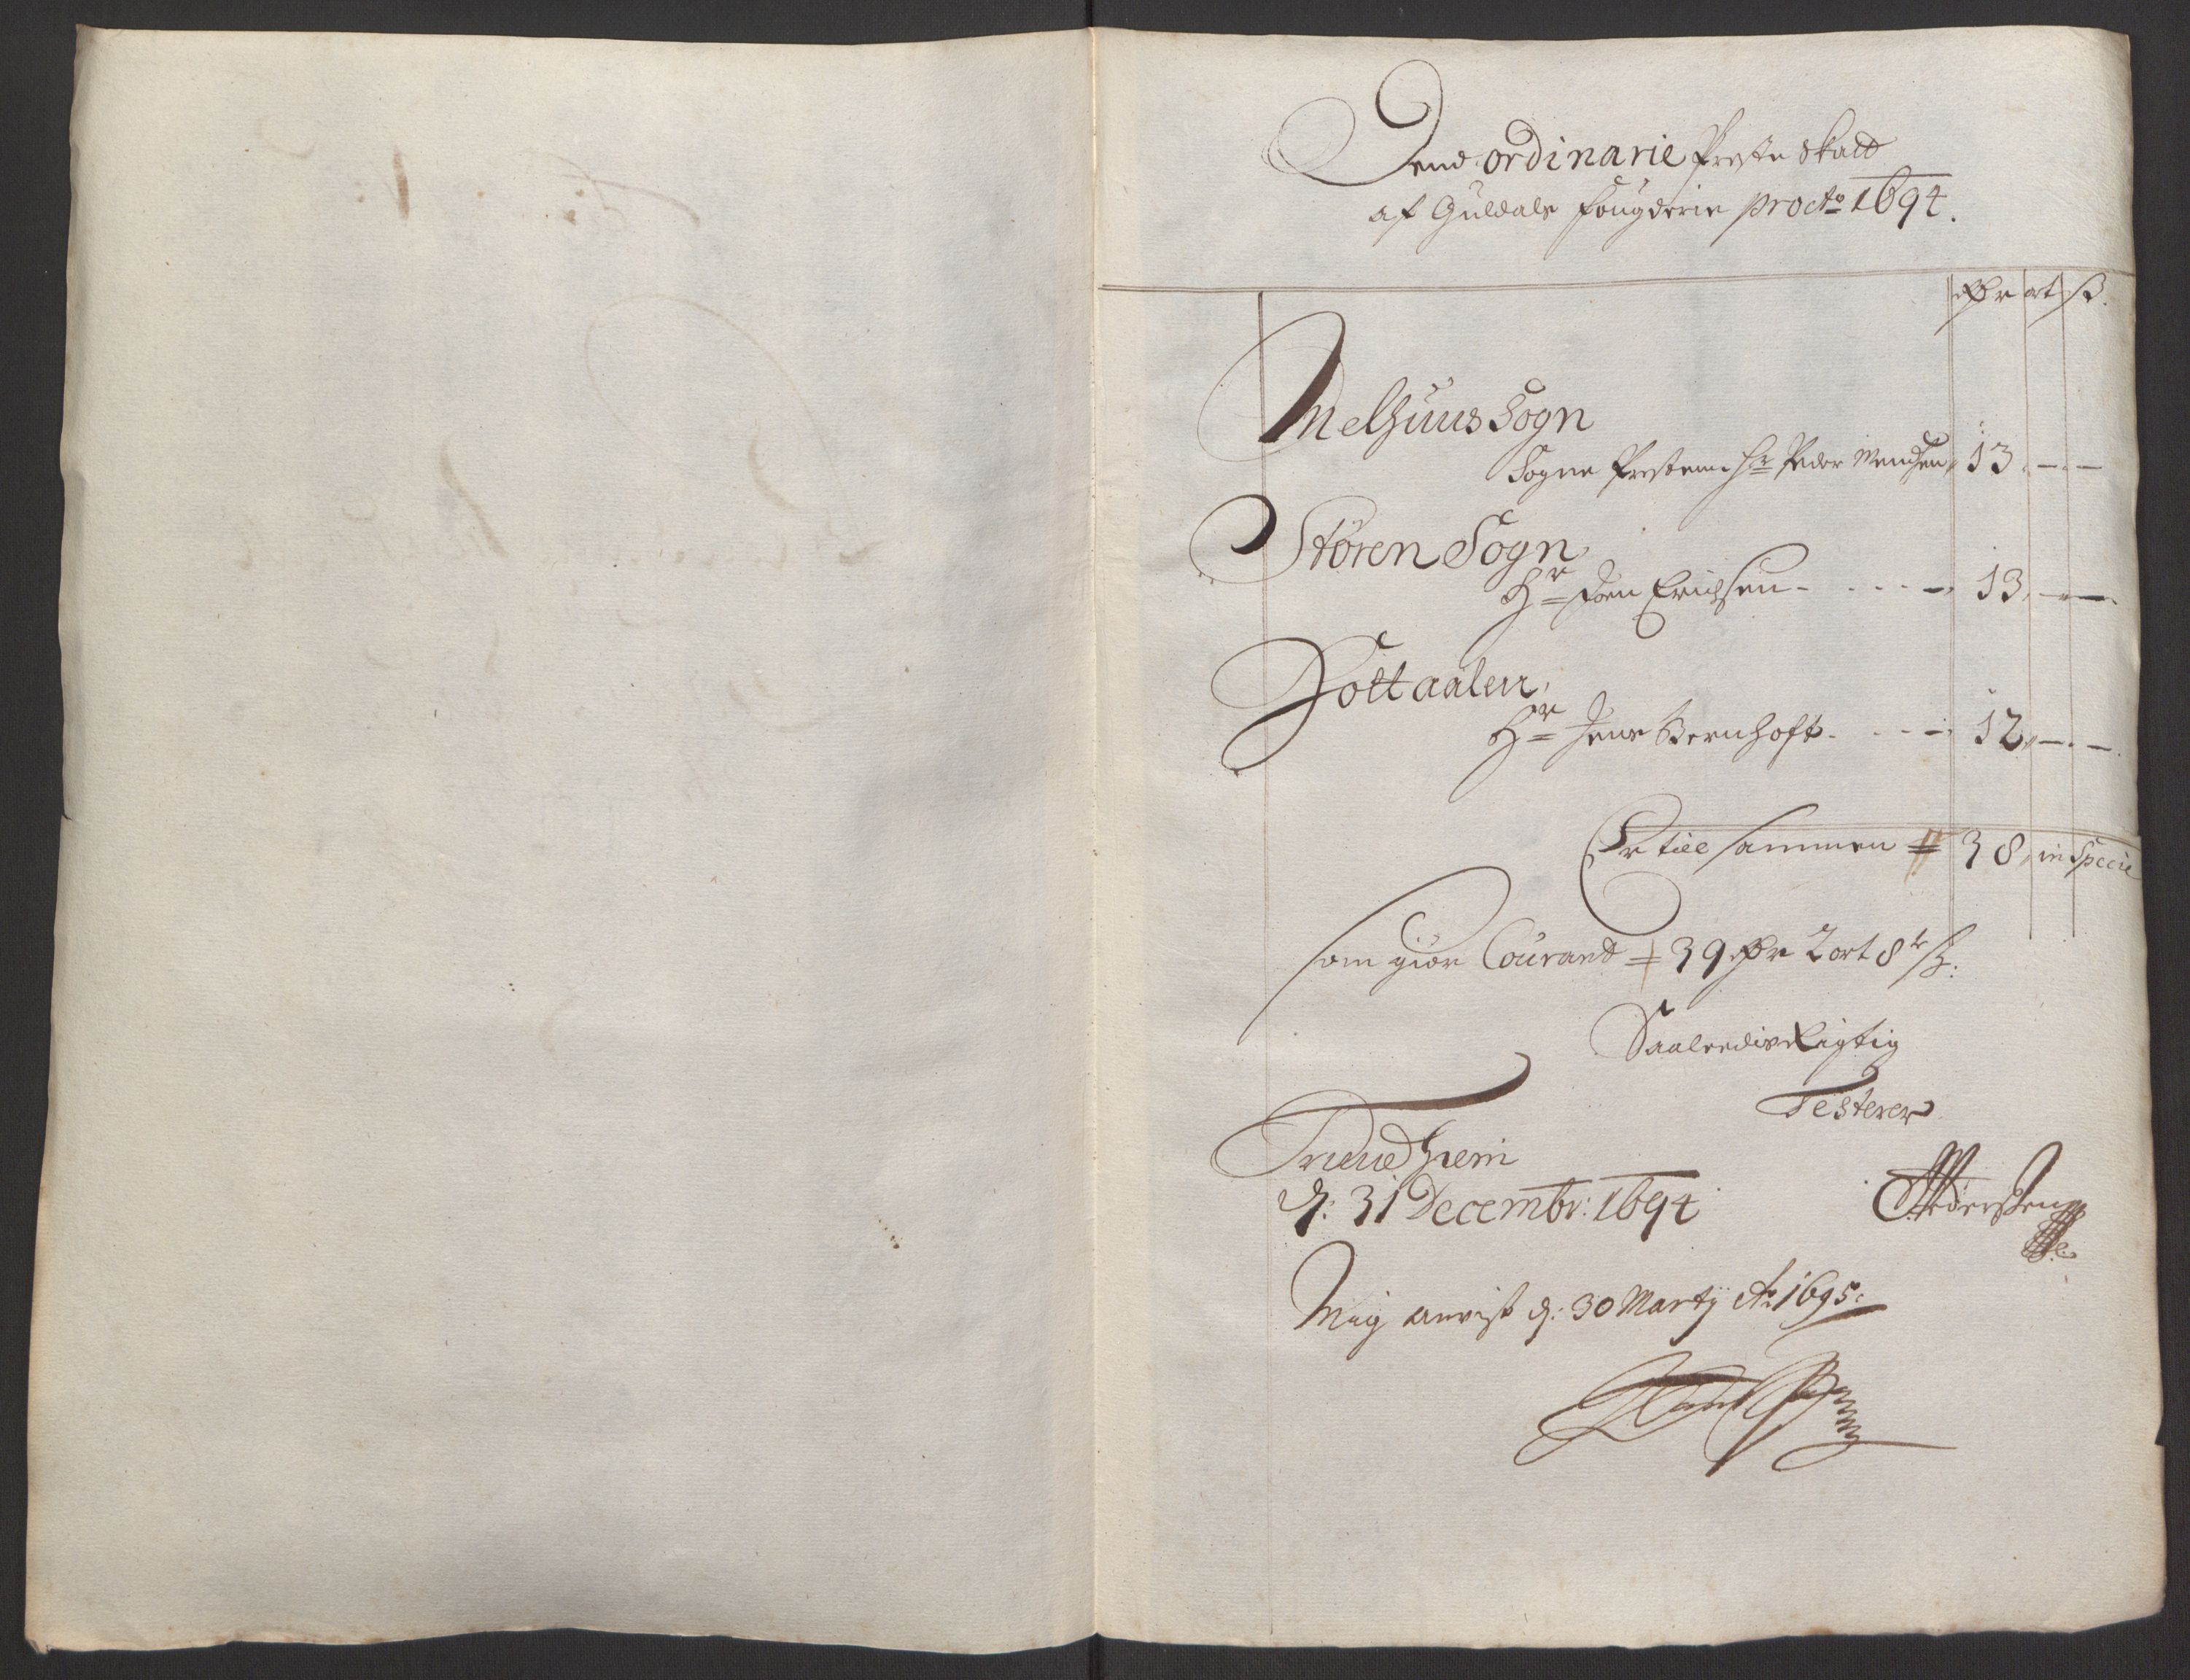 Dend ordinarie Preste Skatt
af Guldals fougderie pro Ao 1694.
rdr ort ß.
Melhuus Sogn
Sogne Presten Hr Peder Mendsen 13 - -
Støren Sogn
Hr Jøen Erichsen - - - - 13 - -
Holtaalen
Hr Jens Bernhoft - - - 12 - -
Er till sammen 38 in Specie
som giør Courant 39 rdr 2 ort 8 ß:
Saaledis Rigtig
Testerer
Trundhiem
d: 31 Decembr: 1694
Mig anvist d: 30 Martij Ao 1695: